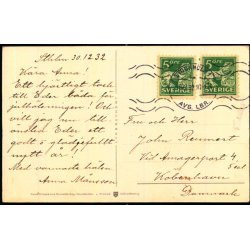 Sthlm 30.12.32
Kära Anna!
Ett hjärtligt tack
till Eder båda för
julhälsningen! Och
vill jag nu till-
önska Eder ett
godt o. glädjefullt
nytt år!
Med varmaste hälsn.
Anna Månsson
5 ÖRE
SVERIGE
5 ÖRE
SVERIGE
AVG. LBR.
Fru och Herr
John Reumert
Vid Amagerport 4
København
Danmark